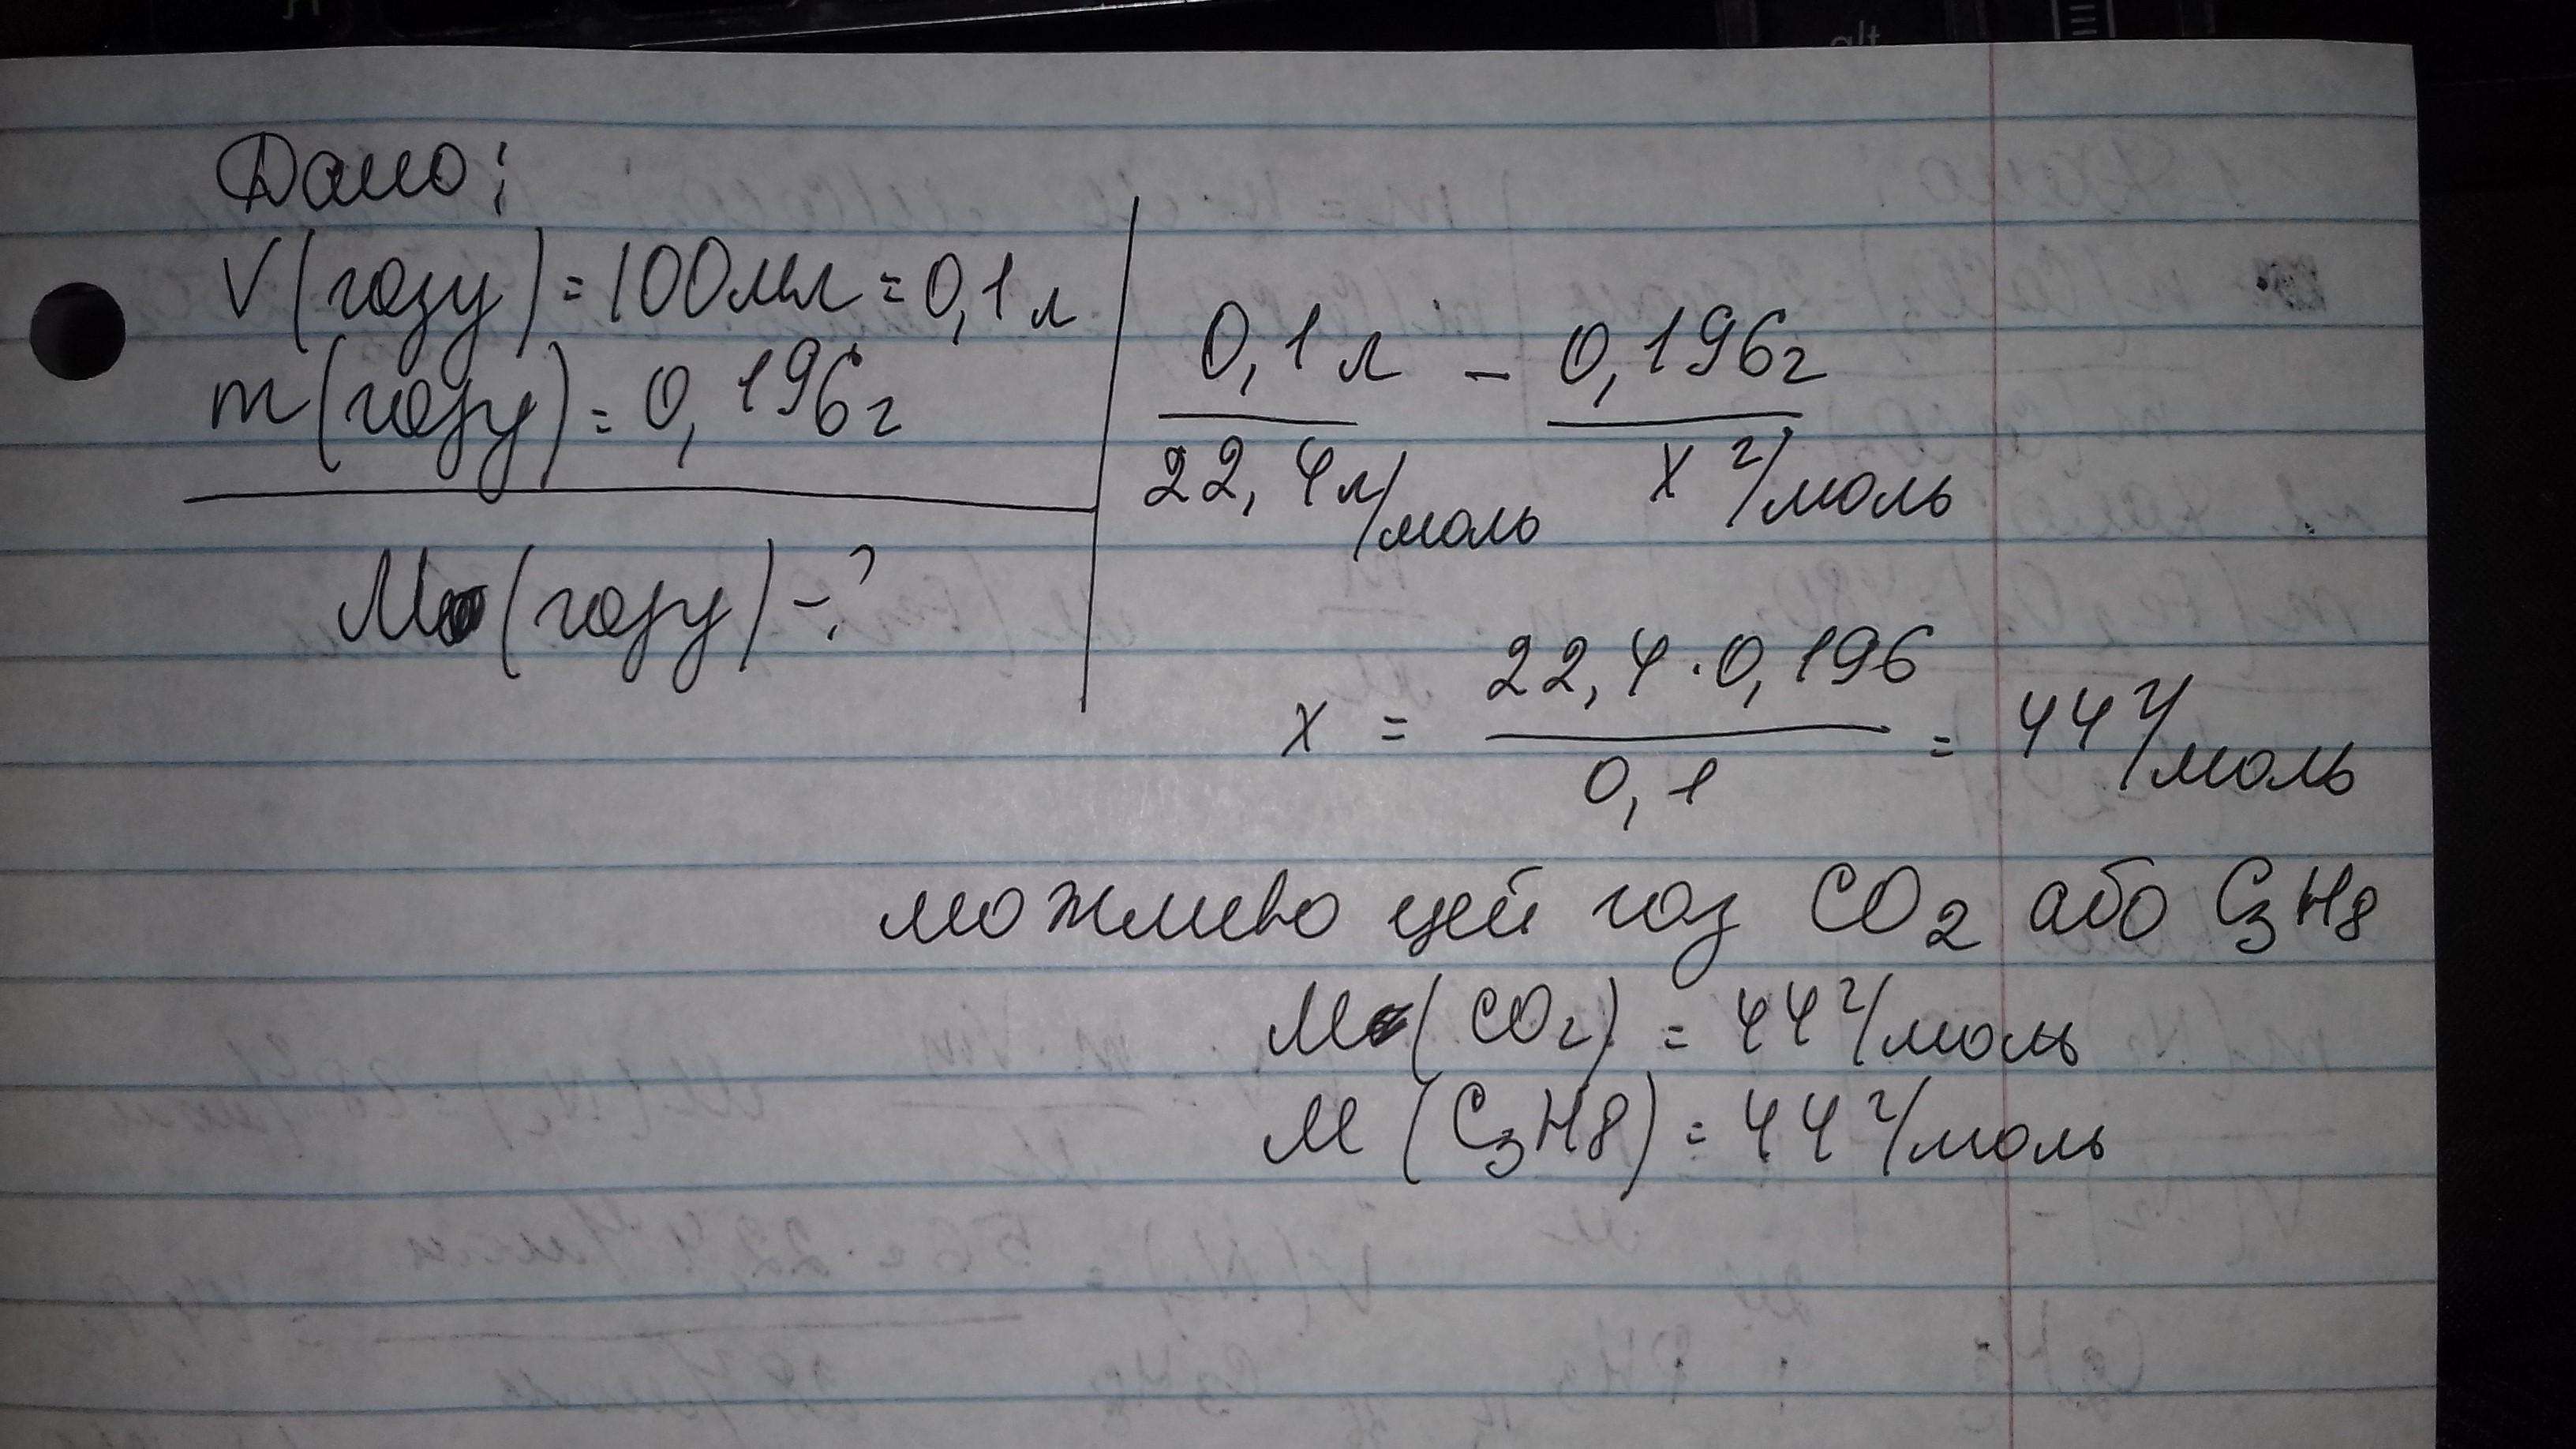 Дано:
V(газу) = 100мл = 0,1 л
m(газу) = 0,196 г
M(газу) - ?
0,1 л - 0,196 г
22,4 л/моль x г/моль
x = 22,4 · 0,196 / 0,1 = 44 г/моль
можливо цей газ CO2 або C3H8
M(CO2) = 44 г/моль
M(C3H8) = 44 г/моль
alt